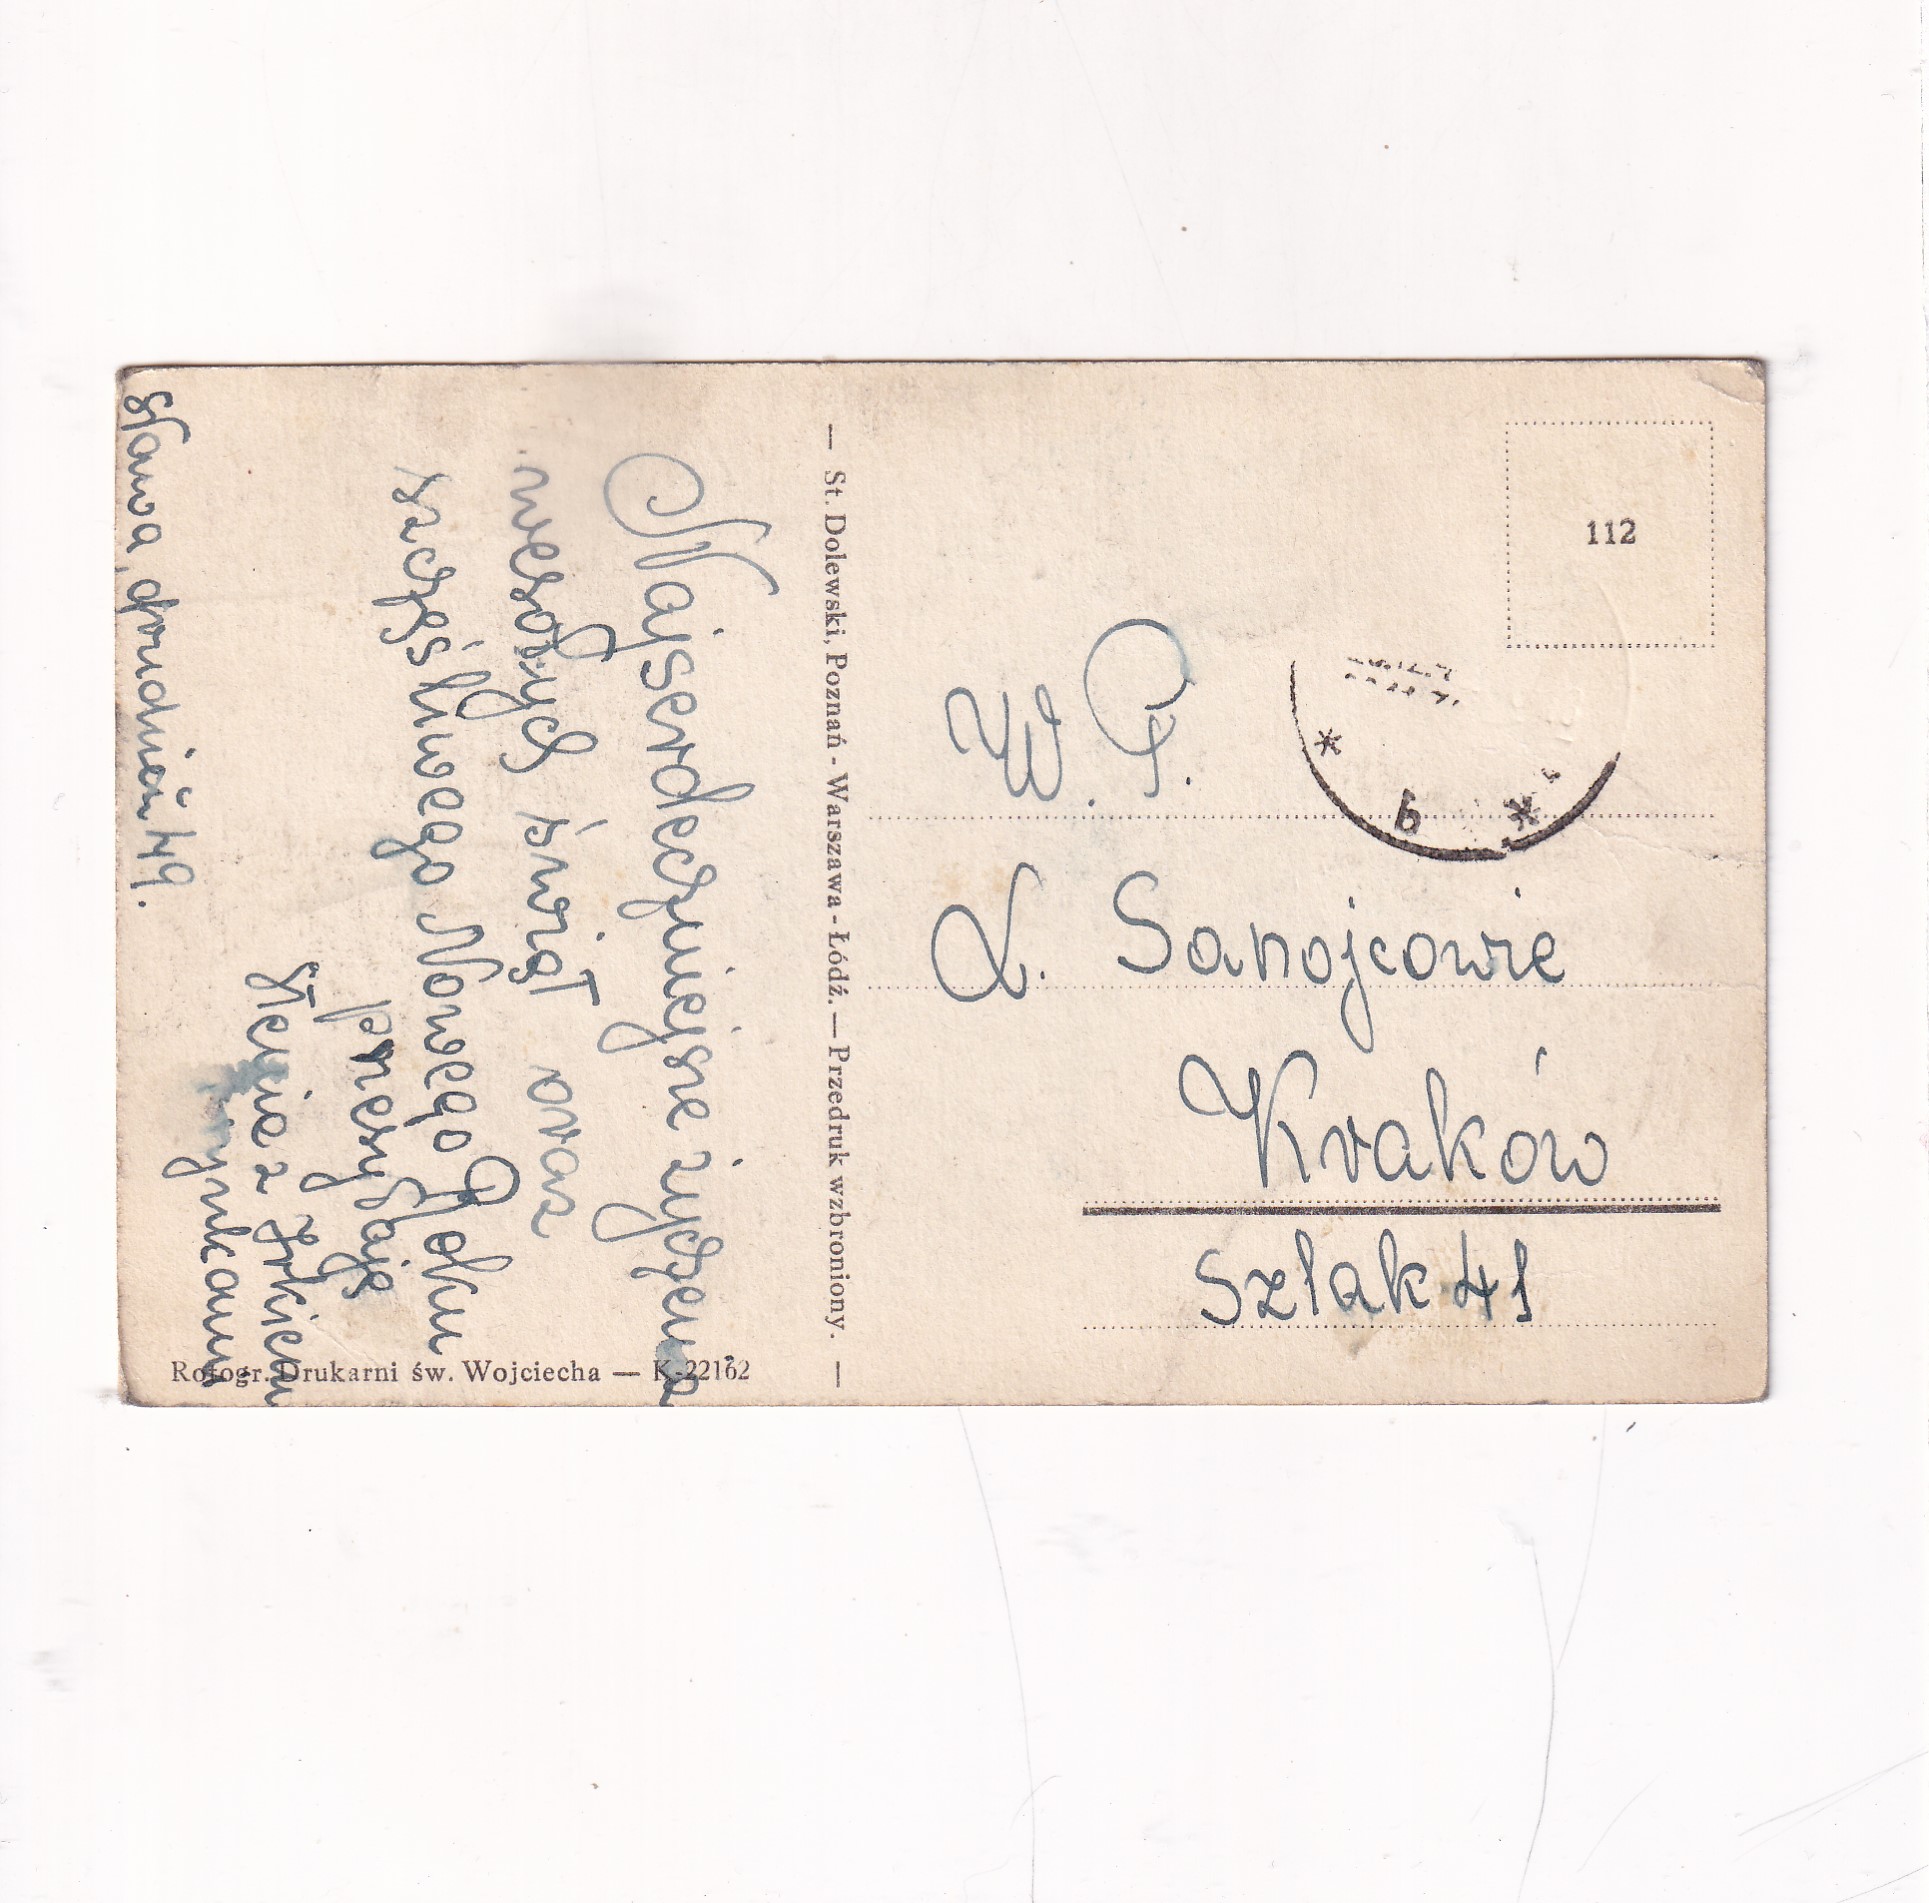 Najserdeczniejsze życzenia
wesołych świąt oraz
szczęśliwego Nowego Roku
przesyłają
Henia z Jurkiem
i synkami
grudzień 49.
— St. Dolewski, Poznań - Warszawa - Łódź. — Przedruk wzbroniony. —
Rotogr. Drukarni św. Wojciecha — K-22162
112
b
W. P.
L. Sanojcowie
Kraków
Szlak 41